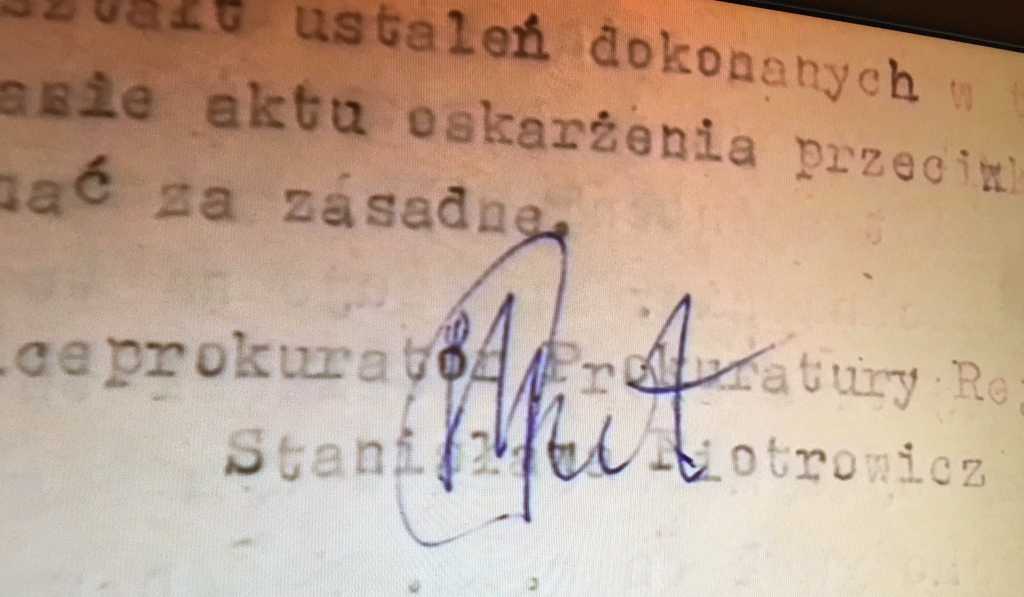 ształt ustaleń dokonanych w t
asie aktu oskarżenia przeciwk
nąć za zásadne.
iceprokurator Prokuratury Rej
Stanisław Piotrowicz